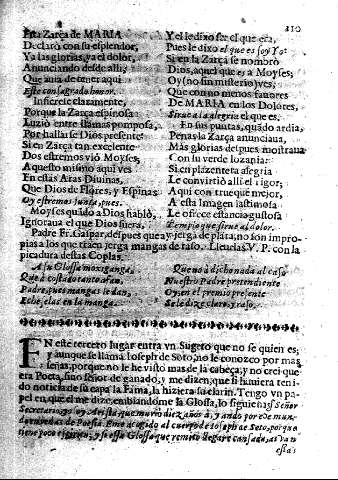 210
Esta Zarça de MARIA
Declarò con su esplendor,
Ya las glorias, ya el dolor,
Anunciando desde alli;
Que auia de tener aqui
Este consagrado honor.
Insierese claramente,
Porque la Zarça espinosa
Luziò entre llamas pomposa,
Por hallarse Dios presente:
Si en Zarça tan excelente
Dos estremos viò Moyses,
Aquesto mismo aqui ves
En estas Aras Diuinas,
Que Dios de Flores, y Espinas
Oy estremos junta, pues.
Moyses quãdo à Dios hablò,
Ignoraua el que Dios fuera,
Y el le dixo se: el que era,
Pues le dixo el que es soy Yo:
Si en la Zarça se nombrò
Dios, aquel que es à Moyses;
Oy (no sin misterio) ves;
Que con no menos fauores
De MARIA en los Dolores,
Sirue a la alegria el que es.
En sus puntas, quãdo ardia,
Penas la Zarça anunciaua,
Mas glorias despues mostraua
Con su verde lozania:
Si en plazentera alegria
Le convirtiò alli el rigor;
Aqui con trueque mejor,
A esta Imagen lastimosa
Le ofrece estancia gustosa
Templo que sirue al dolor.
Padre Fr. Gaspar, despues que aya jarra de plata, no son impropias
a los que traen jerga mangas de raso. Lleuelas V. P. con la
picadura destas Coplas.
A su Glossa mogiganga,
Que à costado tanto afan,
Padre, pues mangas le dan,
Eche, elas en la manga.
Que no à dichonada al caso
Nuestro Padre pretendiente
Oy, en el premio presente
Se le dize claro, y raso.
EN este tercero lugar entra vn Sugeto que no se quien es;
y aunque se llama Ioseph de Soto, no le conozco por mas
señas, porque no le he visto mas de la cabeça, y no crei que
era Poeta, sino señor de ganado, y me dizen, que si huuiera tenido
noticia de su capa la Fama, la hiziera su clarin. Tengo vn papel
en que el me dize, embiandome la Glossa, lo siguiente: Señor
Secretario, yo soy Aristà, que muriò diez años à, y ando por este mundo
de Poesia. Eme acogido al cuerpo de Ioseph de Soto, porque
tiene poco y si essa Glossa que remito llegare cansada,
esta: